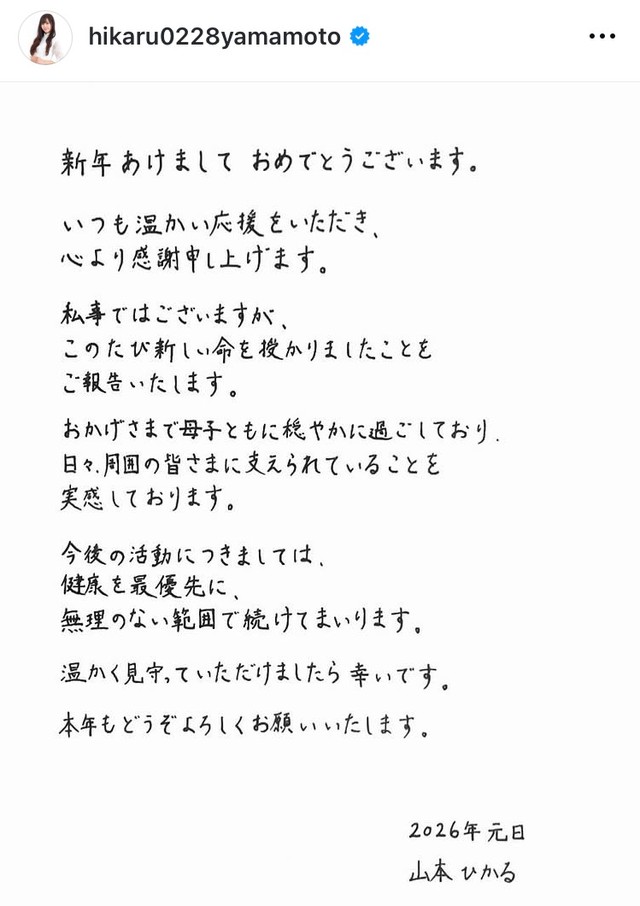 hikaru0228yamamoto
新年あけまして おめでとうございます。
いつも温かい応援をいただき、
心より感謝申し上げます。
私事ではございますが、
このたび新しい命を授かりましたことを
ご報告いたします。
おかげさまで母子ともに穏やかに過ごしており、
日々、周囲の皆さまに支えられていることを
実感しております。
今後の活動につきましては、
健康を最優先に、
無理のない範囲で続けてまいります。
温かく見守っていただけましたら幸いです。
本年もどうぞよろしくお願いいたします。
2026年 元日
山本ひかる